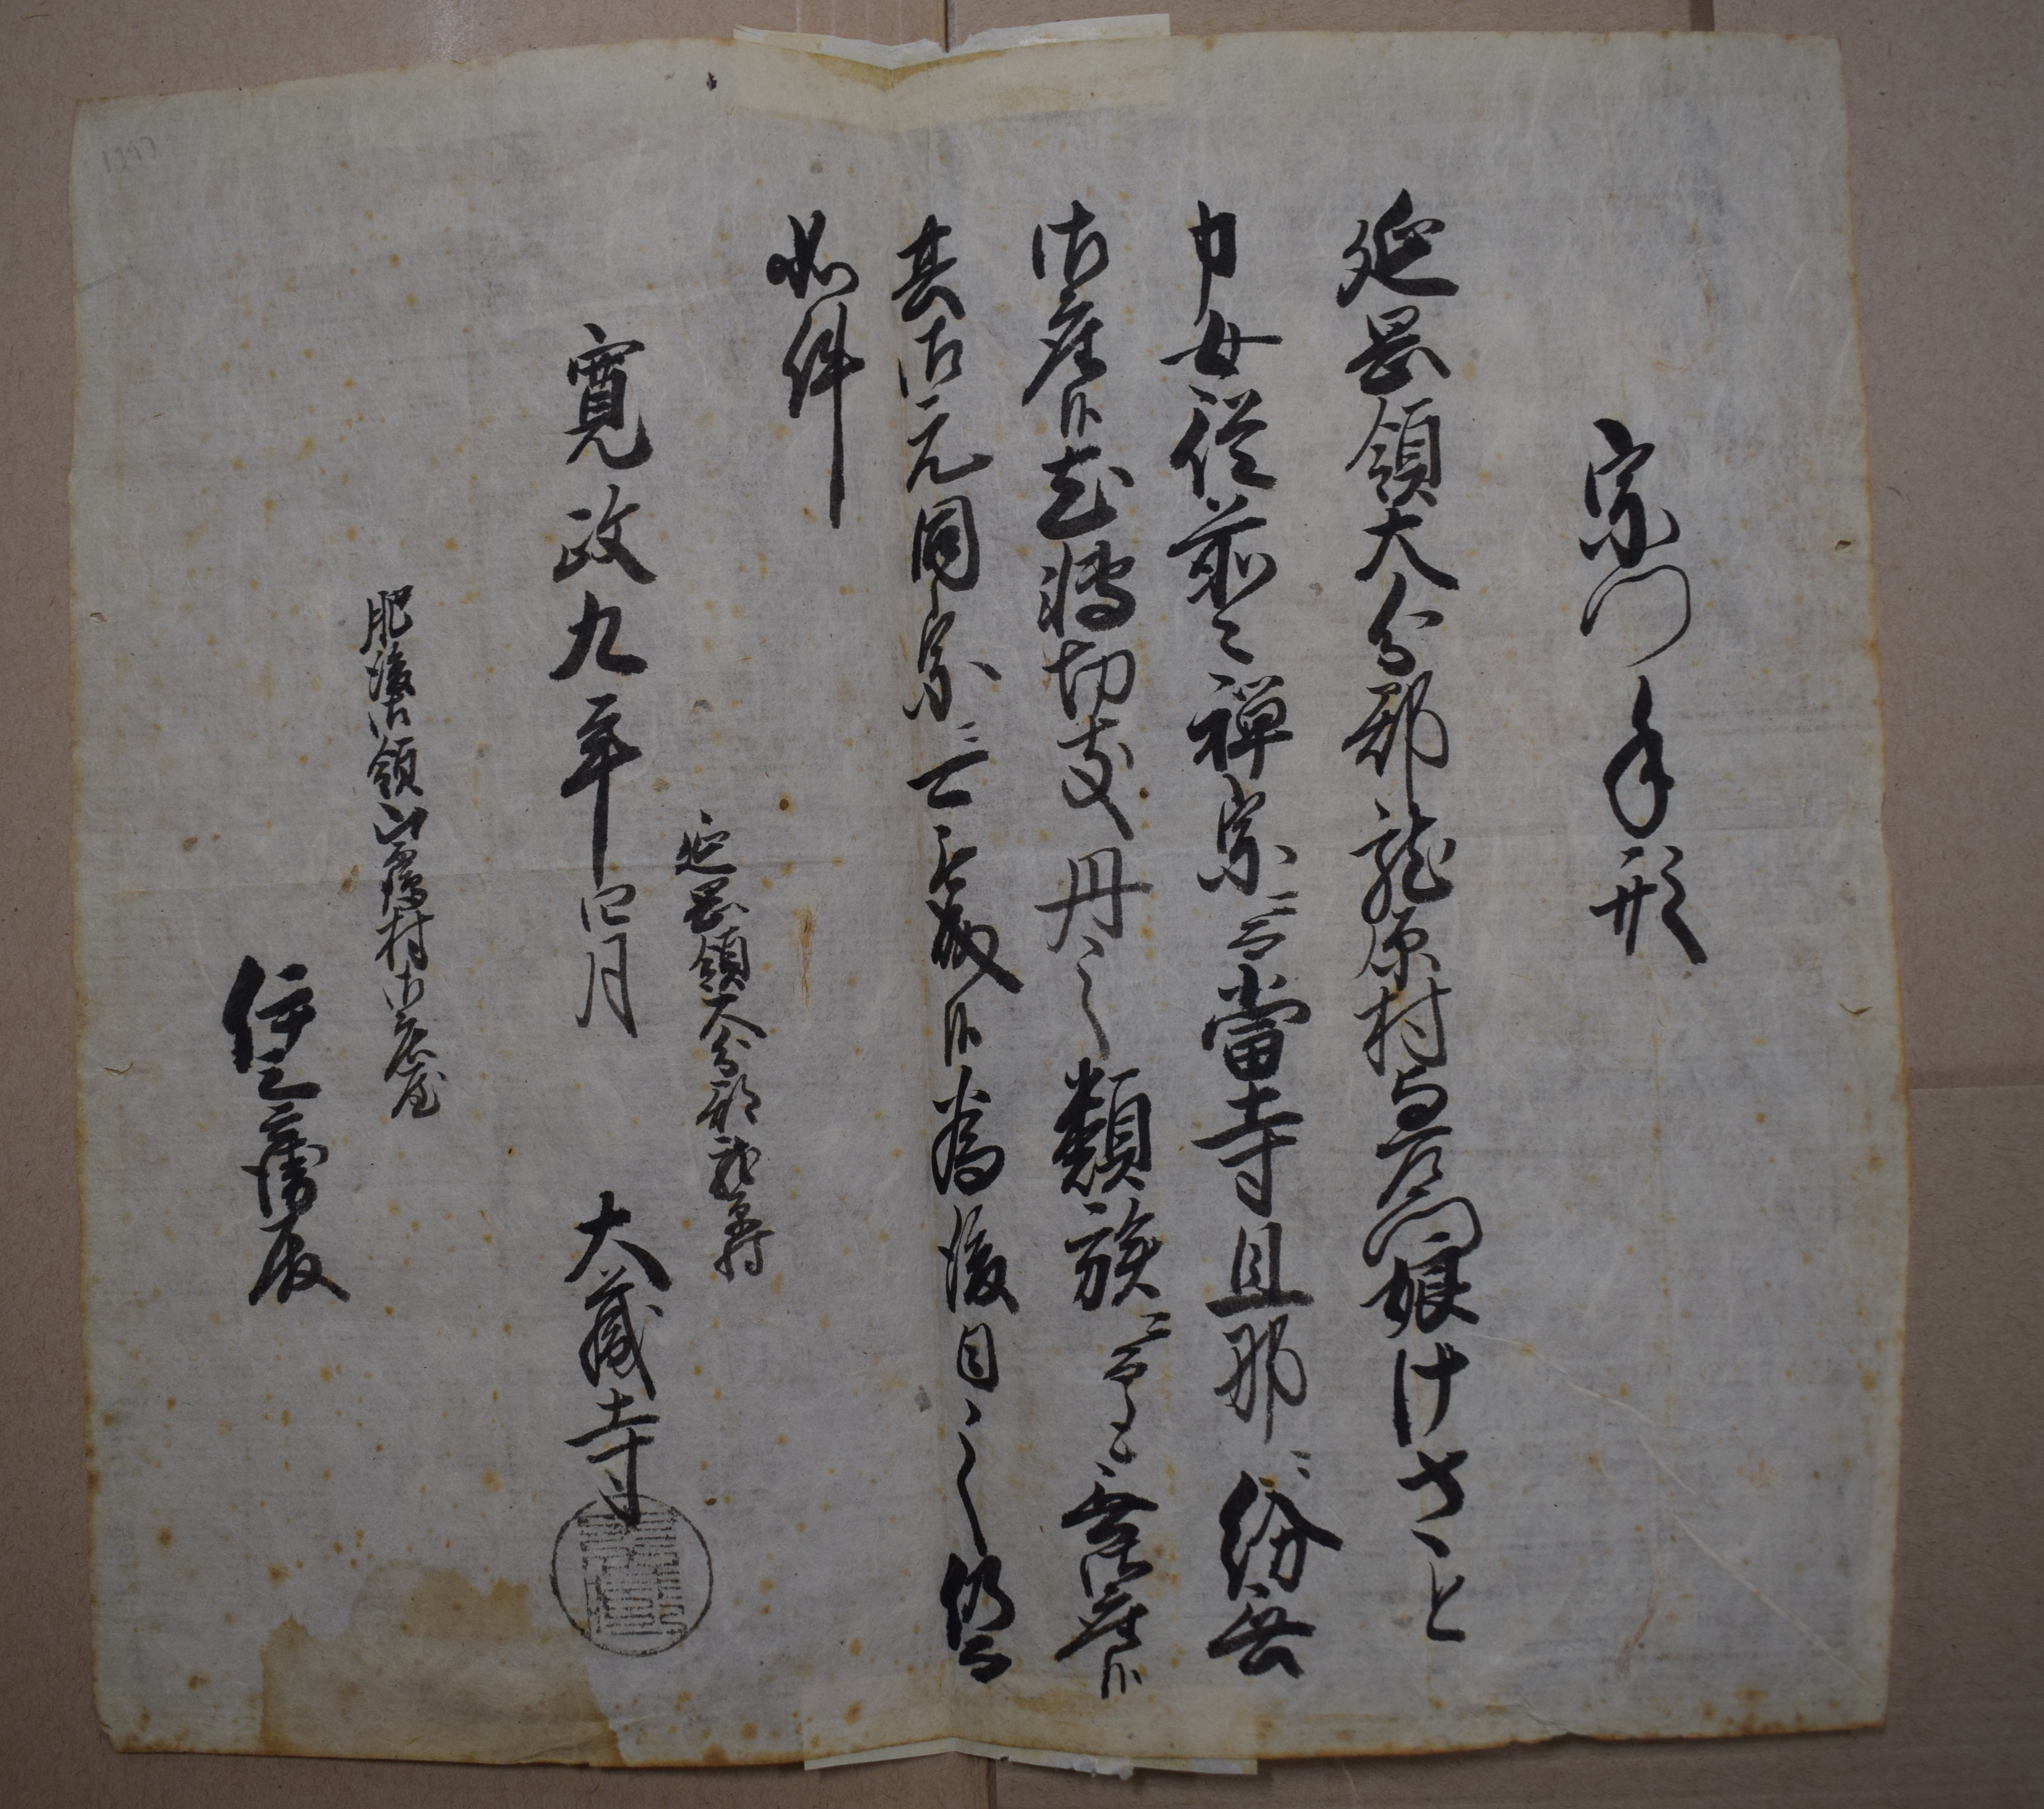 宗門手形
延岡領大分郡龍原村与右衛門娘けさと
申女従前々禅宗ニ而當寺旦那ニ紛無
御座候尤轉切支丹之類族ニ而も無御座候
其御元同宗ニ 候為後日之仍而
如件
延岡領大分郡龍原村
寛政九年四月 大蔵寺
肥後御領 村御庄屋
殿
1797